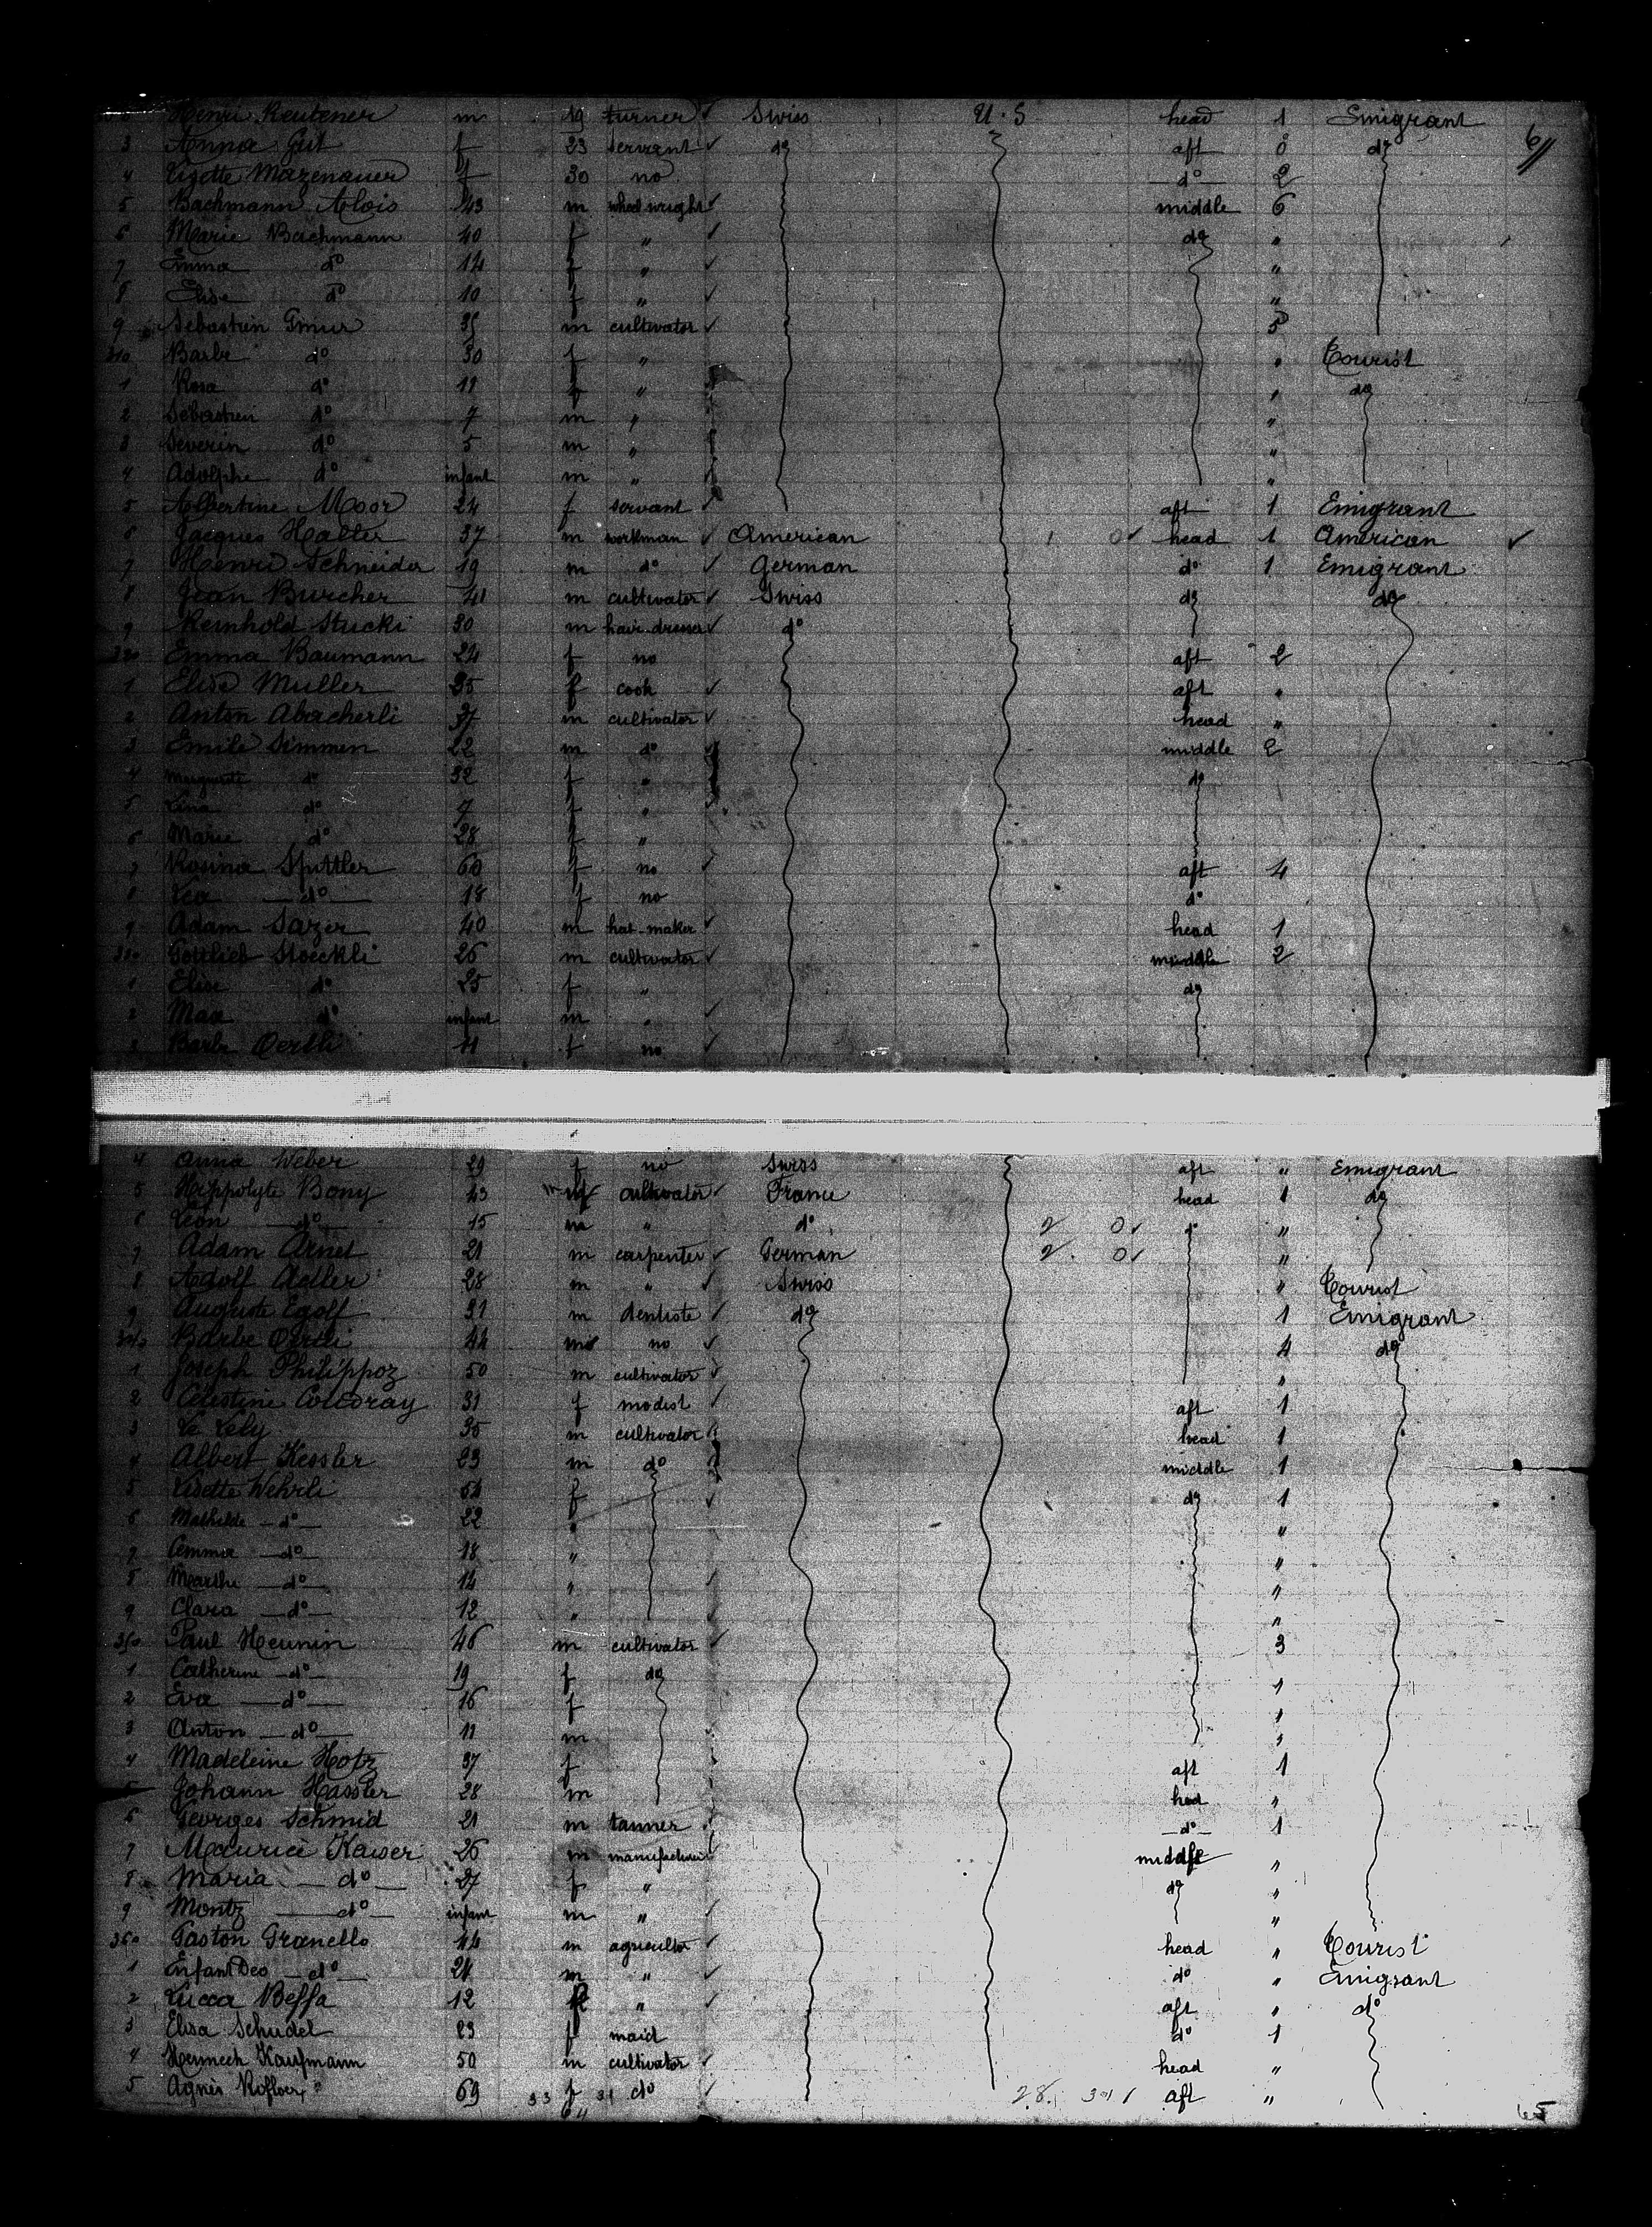 Henri Reutener m 19 turner ✓ Swiss U.S head 1 Emigrant
3 Anna Gut f 23 servant ✓ do aft 0 do 6//
4 Lisette Mazenauer f 30 no do 2
5 Bachmann Alois 43 m wheel wright ✓ middle 6
6 Marie Bachmann 40 f " ✓ do "
7 Emma do 14 f " ✓ "
8 Elise do 10 f " ✓ "
9 Sebastien Gmur 35 m cultivator ✓ 5
310 Barbe do 30 f " " Tourist
1 Rosa do 11 f " " do
2 Sebastien do 7 m " "
3 Severin do 5 m " "
4 Adolphe do infant m " "
5 Albertine Moor 24 f servant ✓ aft 1 Emigrant
6 Jacques Halter 37 m workman ✓ American 1 0✓ head 1 American ✓
7 Henri Schneider 19 m do ✓ German do 1 Emigrant
8 Jean Burcher 41 m cultivator ✓ Swiss do do
9 Reinhold Stucki 30 m hair-dresser ✓ do
320 Emma Baumann 24 f no aft 2
1 Elise Muller 35 f cook ✓ aft "
2 Anton Abacherli 37 m cultivator ✓ head "
3 Emile Simmen 22 m do middle 2
4 Marguerite do 32 f " do
5 Lina do 7 f "
6 Marie do 28 f "
7 Rosina Spittler 60 f no ✓ aft 4
8 Lea do 18 f no do
9 Adam Sazer 40 m hat-maker ✓ head 1
330 Gottlieb Stoeckli 26 m cultivator ✓ middle 2
1 Elise do 25 f " do
2 Max do infant m " ✓
3 Barbe Oertli 41 f no ✓
4 Anna Weber 29 f no Swiss aft " Emigrant
5 Hippolyte Bony 43 m cultivator ✓ France head 1 do
6 Léon do 15 m " do 2 0✓ do "
7 Adam Arnet 21 m carpenter ✓ German 2 0✓ "
8 Adolf Adler 28 m " ✓ Swiss " Tourist
9 Auguste Egolf 31 m dentiste ✓ do 1 Emigrant
340 Barbe Oertli 44 no ✓ 4 do
1 Joseph Philippoz 50 m cultivator ✓ "
2 Celestine 31 f modist ✓ aft 1
3 Le Lely 35 m cultivator head 1
4 Albert Kessler 23 m do middle 1
5 Lisette Wehrli 54 f ✓ do 1
6 Mathilde do 22 " "
7 Emma do 18 " "
8 Marthe do 14 " ✓ "
9 Clara do 12 " ✓ "
350 Paul Heunin 46 m cultivator ✓ 3
1 Catherine do 19 f do "
2 Eva do 16 f "
3 Anton do 11 m "
4 Madeleine Hotz 37 f aft 1
5 Johann Hassler 28 m head "
6 Georges Schmid 21 m tanner do 1
7 Maurice Kaiser 26 m manufacturer middle "
8 Maria do 27 f " do "
9 Moritz do infant m " ✓ "
360 Gaston Granello 44 m agricultor ✓ head " Tourist
1 Enfant Deo do 21 m " ✓ do " Emigrant
2 Lucca Beffa 12 " ✓ aft " do
3 Elisa Schudel 23 f maid do 1
4 Heinrich Kaufmann 50 m cultivator ✓ head "
5 Agnès 69 33 f 31 do ✓ 28. aft "
64 65